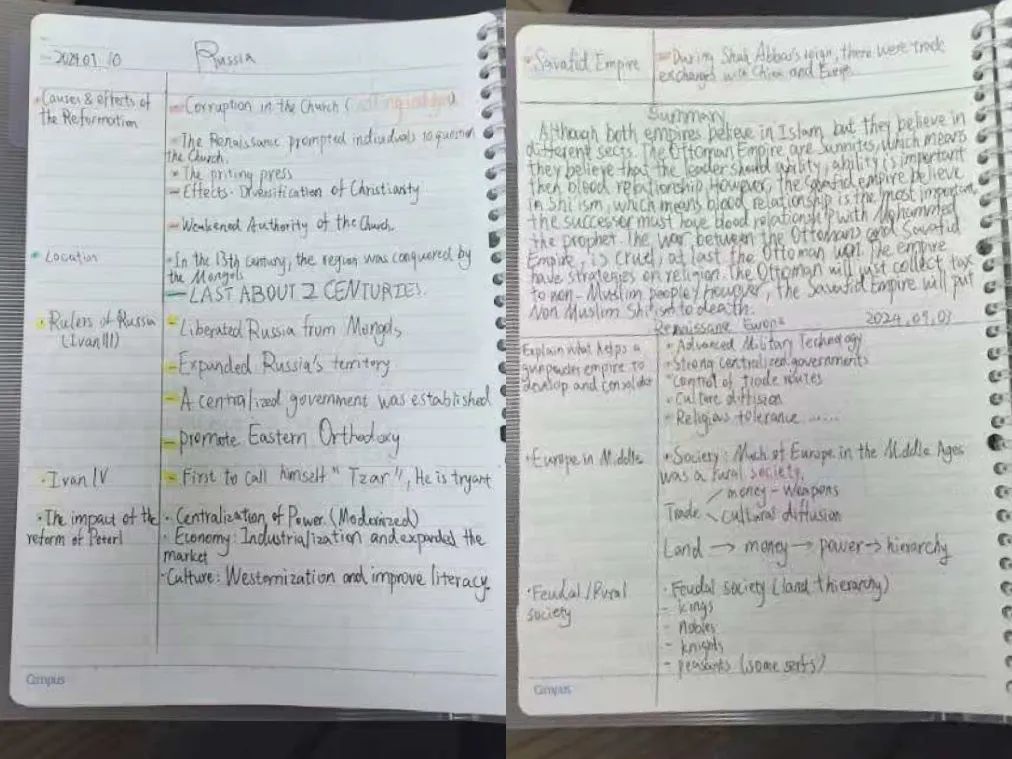 2024.09.10
Russia
Causes & effects of
the Reformation
Corruption in the Church (
The Renaissance prompted individuals to question
the Church.
The priting press
Effects. Diversification of Christianity
Weakened Authority of the Church.
Location
In the 13th century, the region was conquered by
the Mongols
LAST ABOUT 2 CENTURIES.
Rulers of Russia
(Ivan III)
Liberated Russia from Mongols
Expanded Russia's territory
A centralized government was established
promote Eastern Orthodoxy
Ivan IV
First to call himself "Tzar", He is tryant
The impact of the
reform of Peter I
Centralization of Power (Modernized)
Economy: Industrialization and expanded the
market
Culture: Westernization and improve literacy.
Campus
Savafid Empire
During Shah Abbas's reign, there were trade
exchanges with China and Europe.
Summary
Although both empires believe in Islam, but they believe in
different sects. The Ottoman Empire are Sunnites, which means
they believe that the leader should ability, ability is important
then blood relationship. However, the savafid empire believe
in Shi'ism, which means blood relationship is the most important,
the successer must have blood relationship with Mohammed
the prophet. The war between the Ottomans and Savafid
Empire, is cruel, at last the Ottoman won. The empire
have strategies on religion. The Ottoman will just collect tax
to non-Muslim people, however, the Savafid Empire will put
Non Muslim Shi'ism to death.
Renaissane Europe
2024.09.03
Explain what helps a
gunpowder empire to
develop and consolidate
Advanced Military Technology
Strong centralized governments
Control of trade routes
Culture diffision
Religious tolerance ......
Europe in Middle
Society: Much of Europe in the Middle Ages
was a rural society.
money - Weapons
Trade
cultural diffusion
Land → money → power → hierarchy
Feudal/Rural
society
Feudal society (land thierarchy)
- kings
- Nobles
- knights
- peasants (some serfs)
Campus